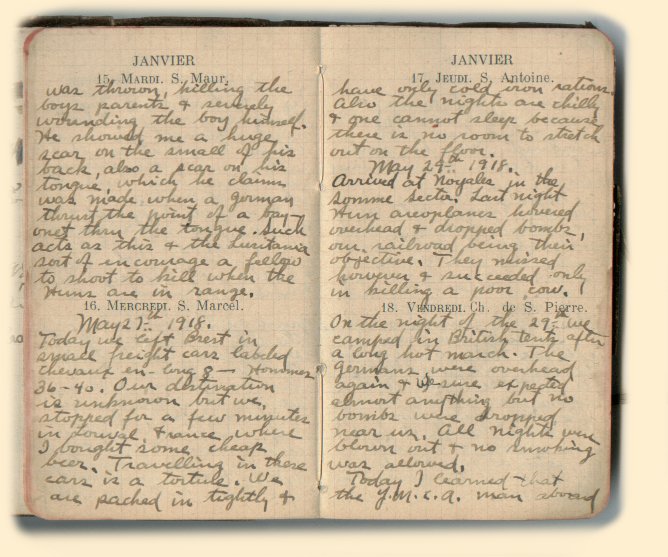 JANVIER
15. MARDI. S. Maur.
was thrown, killing the
boys parents & severely
wounding the boy himself.
He showed me a huge
scar on the small of his
back, also a scar on his
tongue, which he claims
was made when a german
thrust the point of a bay-
onet thru the tongue. Such
acts as this & the Lusitania
sort of incourage a fellow
to shoot to kill when the
Huns are in range.
16. MERCREDI. S. Marcel.
May 27th 1918.
Today we left Brest in
small freight cars labeled
chevaux en-long 8 — Hommes
36-40. Our destination
is unknown but we
stopped for a few minutes
in France where
I bought some cheap
beer. Travelling in these
cars is a torture. We
are packed in tightly &
JANVIER
17. JEUDI. S. Antoine.
have only cold iron rations.
Also the nights are chilly
& one cannot sleep because
there is no room to stretch
out on the floor.
May 29th 1918.
Arrived at Noyales in the
Somme sector. Last night
Hun areoplanes hovered
overhead & dropped bombs,
our railroad being their
objective. They missed
however & succeeded only
in killing a poor cow.
18. VENDREDI. Ch. de S. Pierre.
On the night of the 29th we
camped in British tents after
a long hot march. The
germans were overhead
again & we sure expected
almost anything but no
bombs were dropped
near us. All nights were
blown out & no smoking
was allowed.
Today I learned that
the Y.M.C.A. man aboard